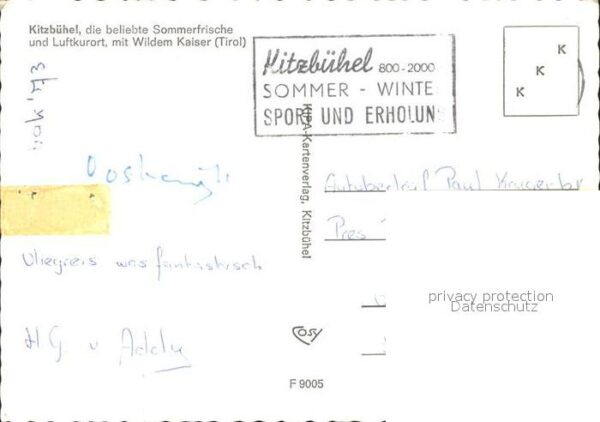 Kitzbühel, die beliebte Sommerfrische
und Luftkurort, mit Wildem Kaiser (Tirol)
Kitzbühel 800-2000
SOMMER - WINTE
SPORT UND ERHOLUN
K
K
K
KIPA-Kartenverlag, Kitzbühel
Vliegreis was fantastisch
H G. v Addy
Autobedrijf Paul
Pres
privacy protection
Datenschutz
COSY
F 9005